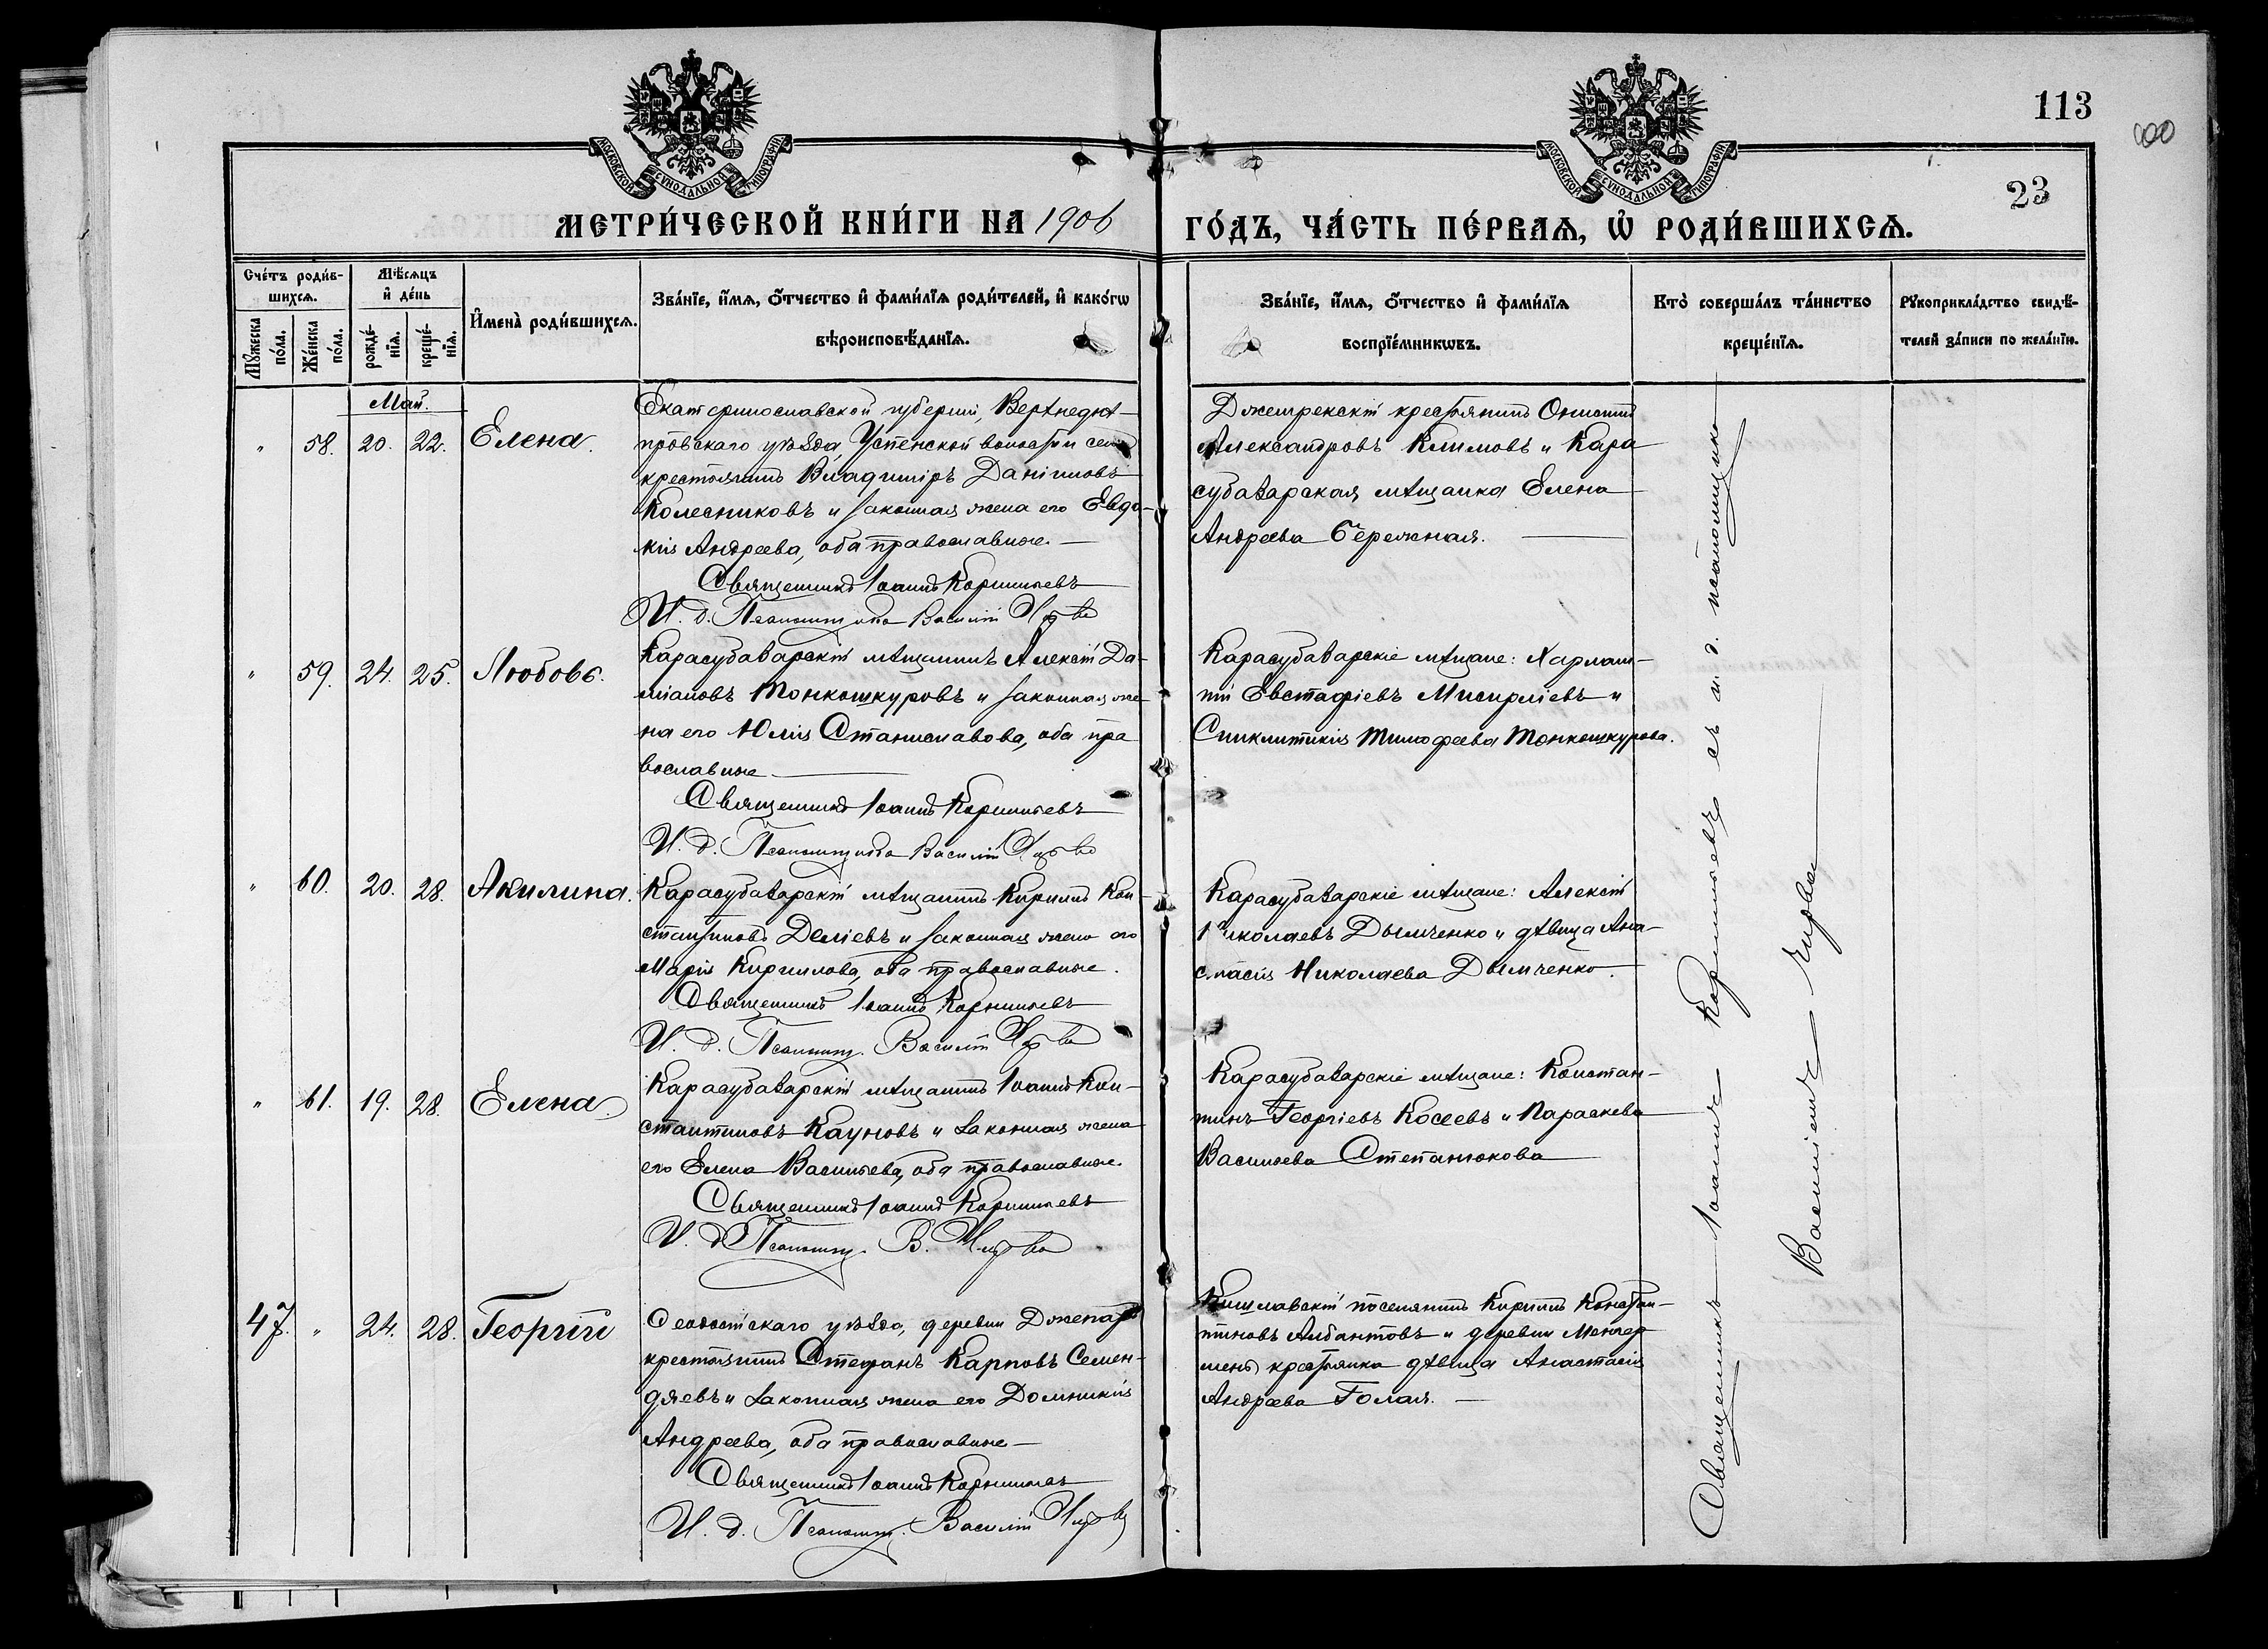 113
23
МОСКОВСКОЙ СѴНОДАЛЬНОЙ ТИПОГРАФІИ.
МОСКОВСКОЙ СѴНОДАЛЬНОЙ ТИПОГРАФІИ.
МЕТРИ́ЧЕСКОЙ КНИ́ГИ НА 1906 ГО́ДЪ, ЧА́СТЬ ПЕ́РВАѦ, Ѡ҆ РОДИ́ВШИХСѦ.
Сче́тъ роди́в-
шихсѧ.
Мꙋ́жеска по́ла.
Же́нска по́ла.
Мѣ́сѧцъ и҆ де́нь
рожде́-нїѧ.
креще́-нїѧ.
И҆мена̀ роди́вшихсѧ.
Зва́нїе, и҆́мѧ, ѻ҆́тчество и҆ фами́лїѧ роди́телей, и҆ како́гѡ
вѣроисповѣ́данїѧ.
Зва́нїе, и҆́мѧ, ѻ҆́тчество и҆ фами́лїѧ
воспрїе́мникѡвъ.
Кто̀ соверша́лъ та́инство
креще́нїѧ.
Рꙋкоприкла́дство свидѣ́-
телей за́писи по жела́нїю.
Май.
" 58. 20. 22. Елена.
Екатеринославской губерніи, Верхнеднѣ-
провскаго уѣзда, Успенской волости
крестьянинъ Владиміръ Даніиловъ
Колесниковъ и законная жена его Евдо-
кія Андреева, оба православные.
Священникъ Іоаннъ Корнильевъ
И. д. Псаломщика Василій Чирва
Александровъ Климовъ и Кара
субазарская мѣщанка Елена
Андреева Бережная.
" 59. 24. 25. Любовь.
Карасубазарскій мѣщанинъ Алексій Да-
міановъ Тонкошкуровъ и законная же-
на его Юлія Станиславова, оба пра
вославные
Священникъ Іоаннъ Корнильевъ
И. д. Псаломщика Василій Чирва
Карасубазарскіе мѣщане: Харлам-
пій Евстафіевъ Мисирліевъ и
Синклитикія Тимофеева Тонкошкурова.
" 60. 20. 28. Акилина.
Карасубазарскій мѣщанинъ Кириллъ Кон-
стантиновъ Деліевъ и законная жена его
Марія Кириллова, оба православные.
Священникъ Іоаннъ Корнильевъ
И. д. Псаломщ. Василій Чирва
Карасубазарскіе мѣщане: Алексій
Николаевъ Дымченко и дѣвица Ана-
стасія Николаева Дымченко.
" 61. 19. 28. Елена
Карасубазарскій мѣщанинъ Іоаннъ Кон-
стантиновъ Кауновъ и законная жена
его Елена Васильева, оба православные.
Священникъ Іоаннъ Корнильевъ
И. д. Псаломщ. В. Чирва
Карасубазарскіе мѣщане: Констан-
тинъ Георгіевъ Косеевъ и Параскева
Васильева Степанюкова
47. " 24. 28. Георгій
Ѳеодосійскаго уѣзда, деревни
крестьянинъ Стефанъ Карповъ Семен-
дяевъ и законная жена его Домникія
Андреева, оба православные
Священникъ Іоаннъ Корнильевъ
И. д. Псаломщ. Василій Чирва
Кишлавскій поселянинъ Кириллъ Констан-
тиновъ Албантовъ и деревни
крестьянка дѣвица Анастасія
Андреева Голая.
Священникъ Іоаннъ Корнильевъ съ и. д. псаломщика
Василіемъ Чирва